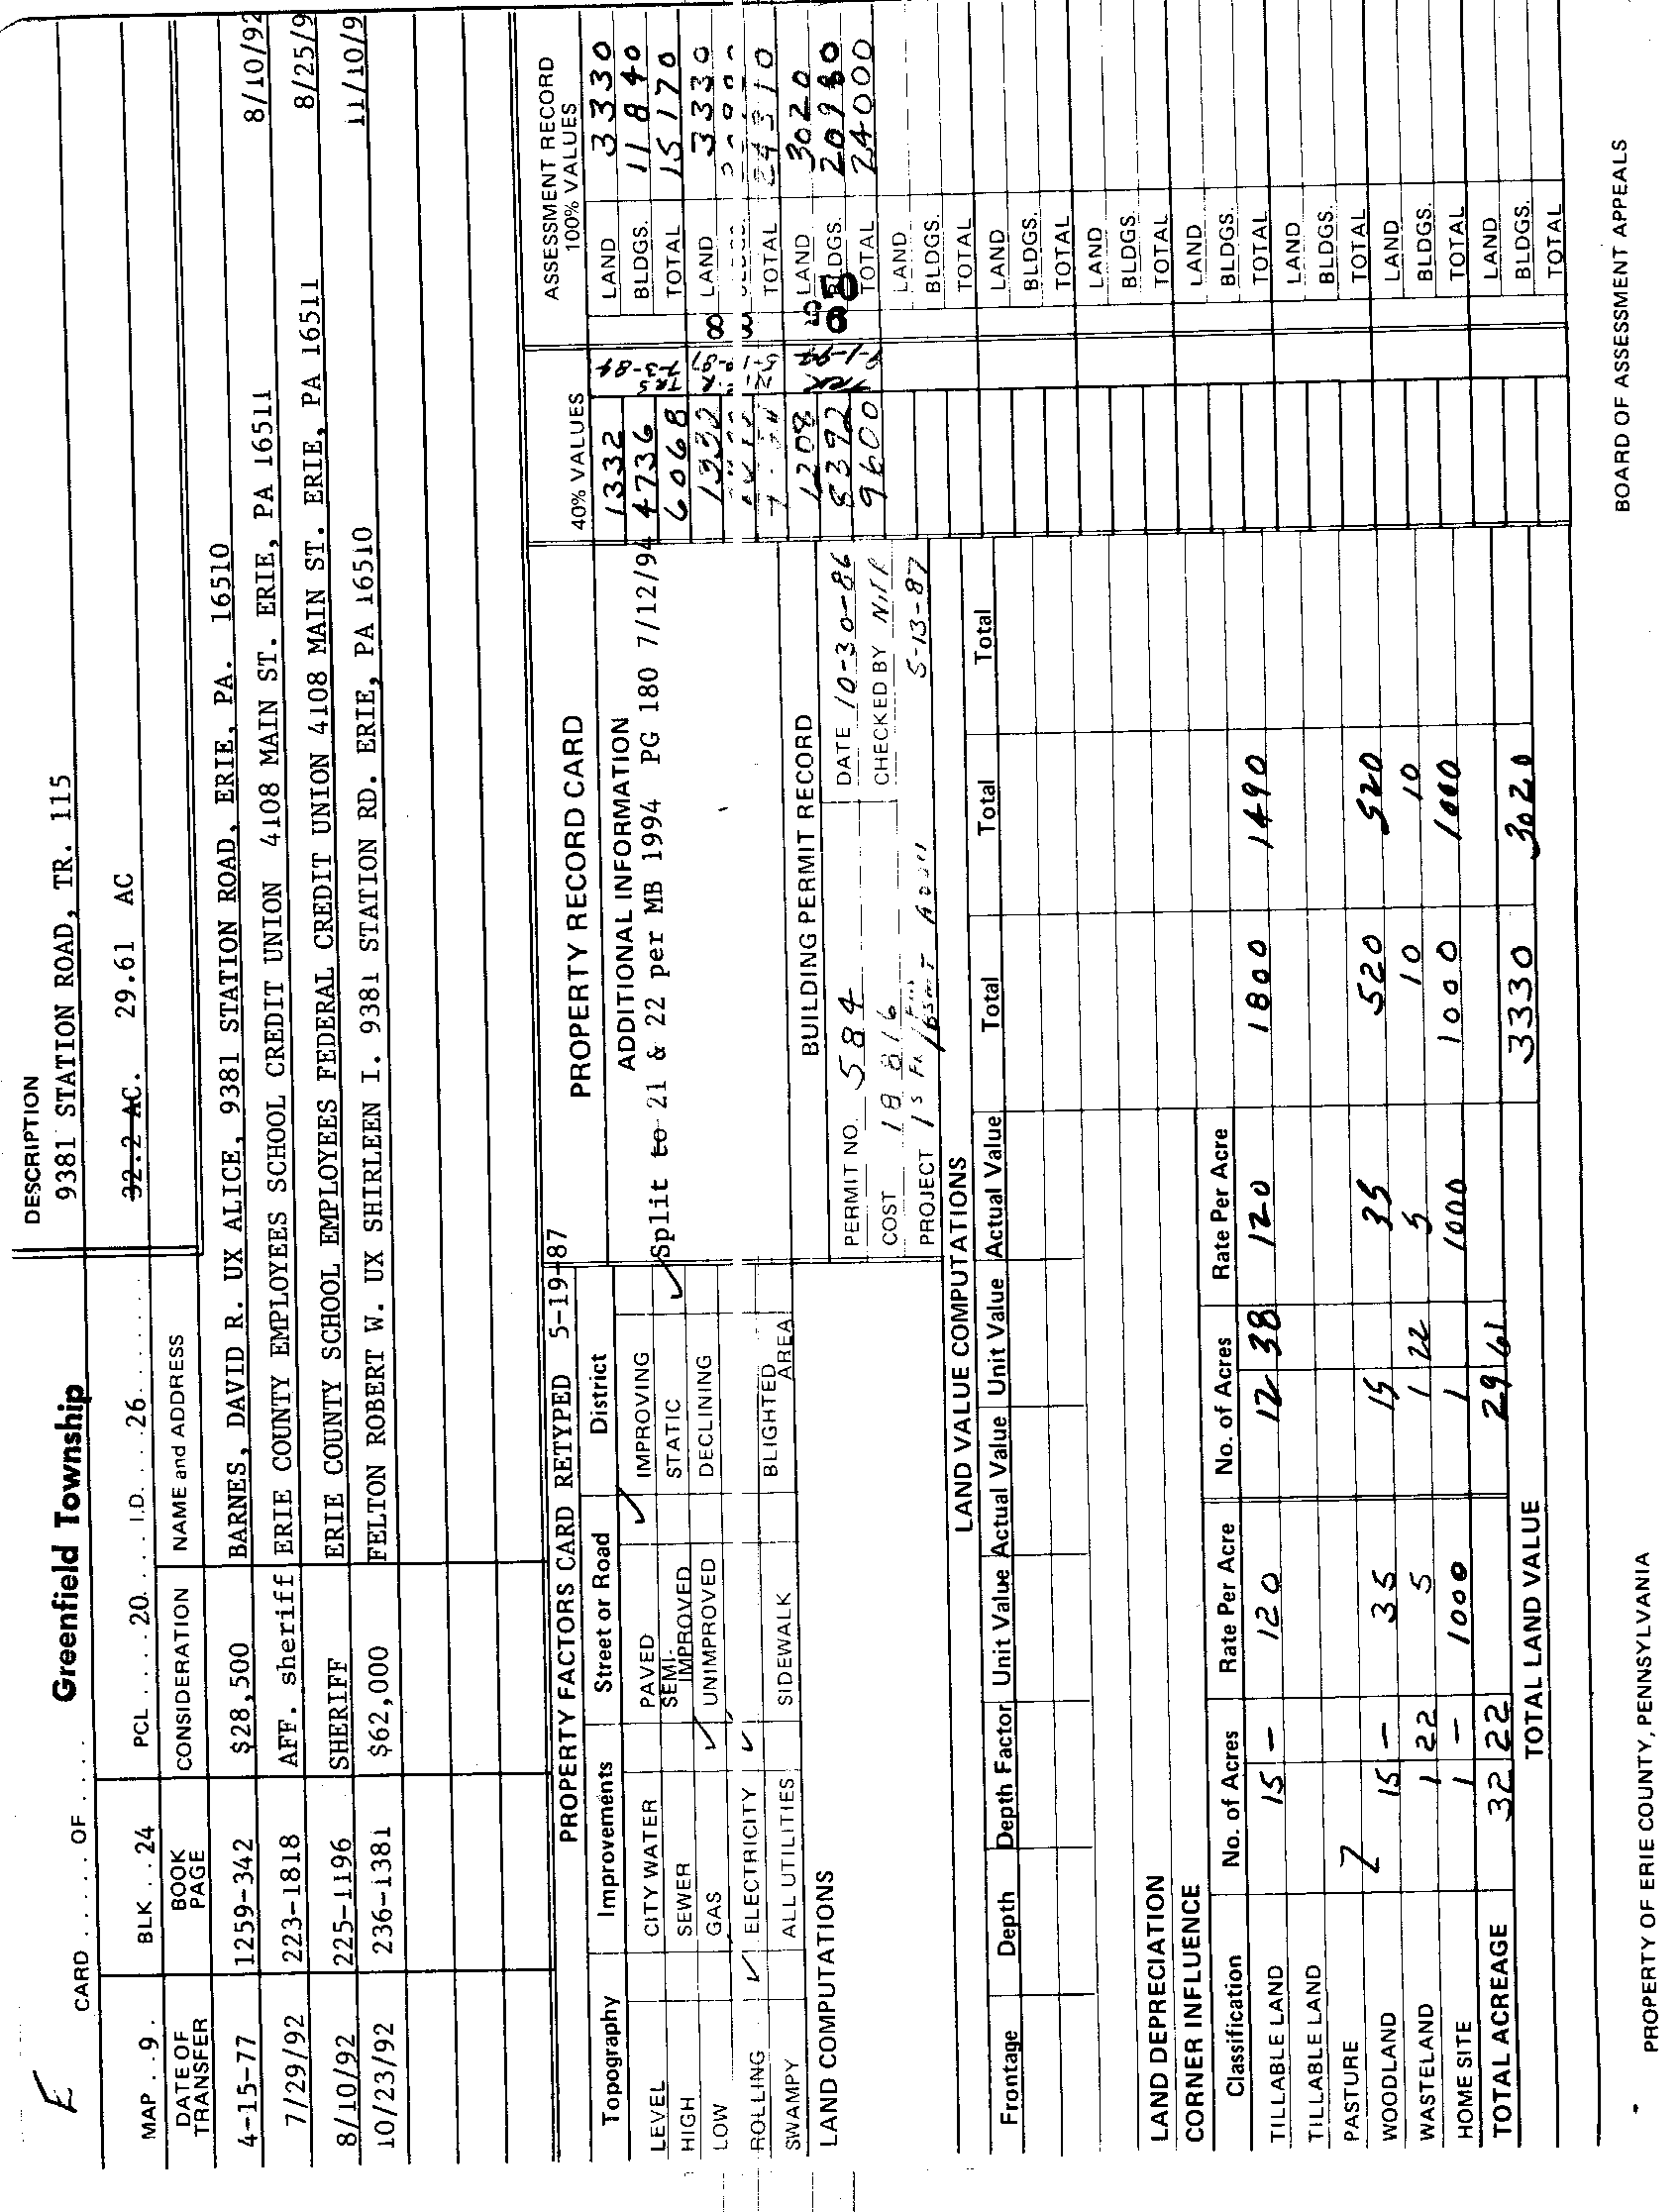 E
CARD ..... OF .... Greenfield Township
DESCRIPTION
9381 STATION ROAD, TR. 115
MAP . . 9 . BLK . . 24 PCL .... 20 .... I.D. ... 26 .......
32.2 AC. 29.61 AC
DATE OF TRANSFER BOOK PAGE CONSIDERATION NAME and ADDRESS
4-15-77 1259-342 $28,500 BARNES, DAVID R. UX ALICE, 9381 STATION ROAD, ERIE, PA. 16510
7/29/92 223-1818 AFF. sheriff ERIE COUNTY EMPLOYEES SCHOOL CREDIT UNION 4108 MAIN ST. ERIE, PA 16511 8/10/92
8/10/92 225-1196 SHERIFF ERIE COUNTY SCHOOL EMPLOYEES FEDERAL CREDIT UNION 4108 MAIN ST. ERIE, PA 16511 8/25/9
10/23/92 236-1381 $62,000 FELTON ROBERT W. UX SHIRLEEN I. 9381 STATION RD. ERIE, PA 16510 11/10/9
PROPERTY FACTORS CARD RETYPED 5-19-87
Topography Improvements Street or Road District
LEVEL CITY WATER PAVED ✓ IMPROVING
HIGH SEWER SEMI. IMPROVED STATIC ✓
LOW GAS ✓ UNIMPROVED DECLINING
ROLLING ✓ ELECTRICITY ✓ BLIGHTED AREA
SWAMPY ALL UTILITIES SIDEWALK
PROPERTY RECORD CARD
ADDITIONAL INFORMATION
Split to 21 & 22 per MB 1994 PG 180 7/12/94
BUILDING PERMIT RECORD
PERMIT NO. 584 DATE 10-30-86
COST 18816 CHECKED BY
PROJECT 1s Fr / 5-13-87
40% VALUES ASSESSMENT RECORD 100% VALUES
1332 TRS 7-3-84 LAND 3330
4736 BLDGS. 11840
6068 TOTAL 15170
1332 LAND 3330
TOTAL 24310
1208 LAND 3020
8392 BLDGS. 20980
9600 TOTAL 24000
LAND
BLDGS.
TOTAL
LAND
BLDGS.
TOTAL
LAND
BLDGS.
TOTAL
LAND
BLDGS.
TOTAL
LAND
BLDGS.
TOTAL
LAND
BLDGS.
TOTAL
LAND
BLDGS.
TOTAL
LAND COMPUTATIONS
LAND VALUE COMPUTATIONS
Frontage Depth Depth Factor Unit Value Actual Value Unit Value Actual Value Unit Value Actual Value Total Total Total
LAND DEPRECIATION
CORNER INFLUENCE
Classification No. of Acres Rate Per Acre No. of Acres Rate Per Acre
TILLABLE LAND 15 - 120 12 38 120 1800 1490
TILLABLE LAND
PASTURE
WOODLAND 15 - 35 15 35 520 520
WASTELAND 1 22 5 1 22 5 10 10
HOME SITE 1 - 1000 1 1000 1000 1000
TOTAL ACREAGE 32 22 29 61 3330 3020
TOTAL LAND VALUE
PROPERTY OF ERIE COUNTY, PENNSYLVANIA BOARD OF ASSESSMENT APPEALS